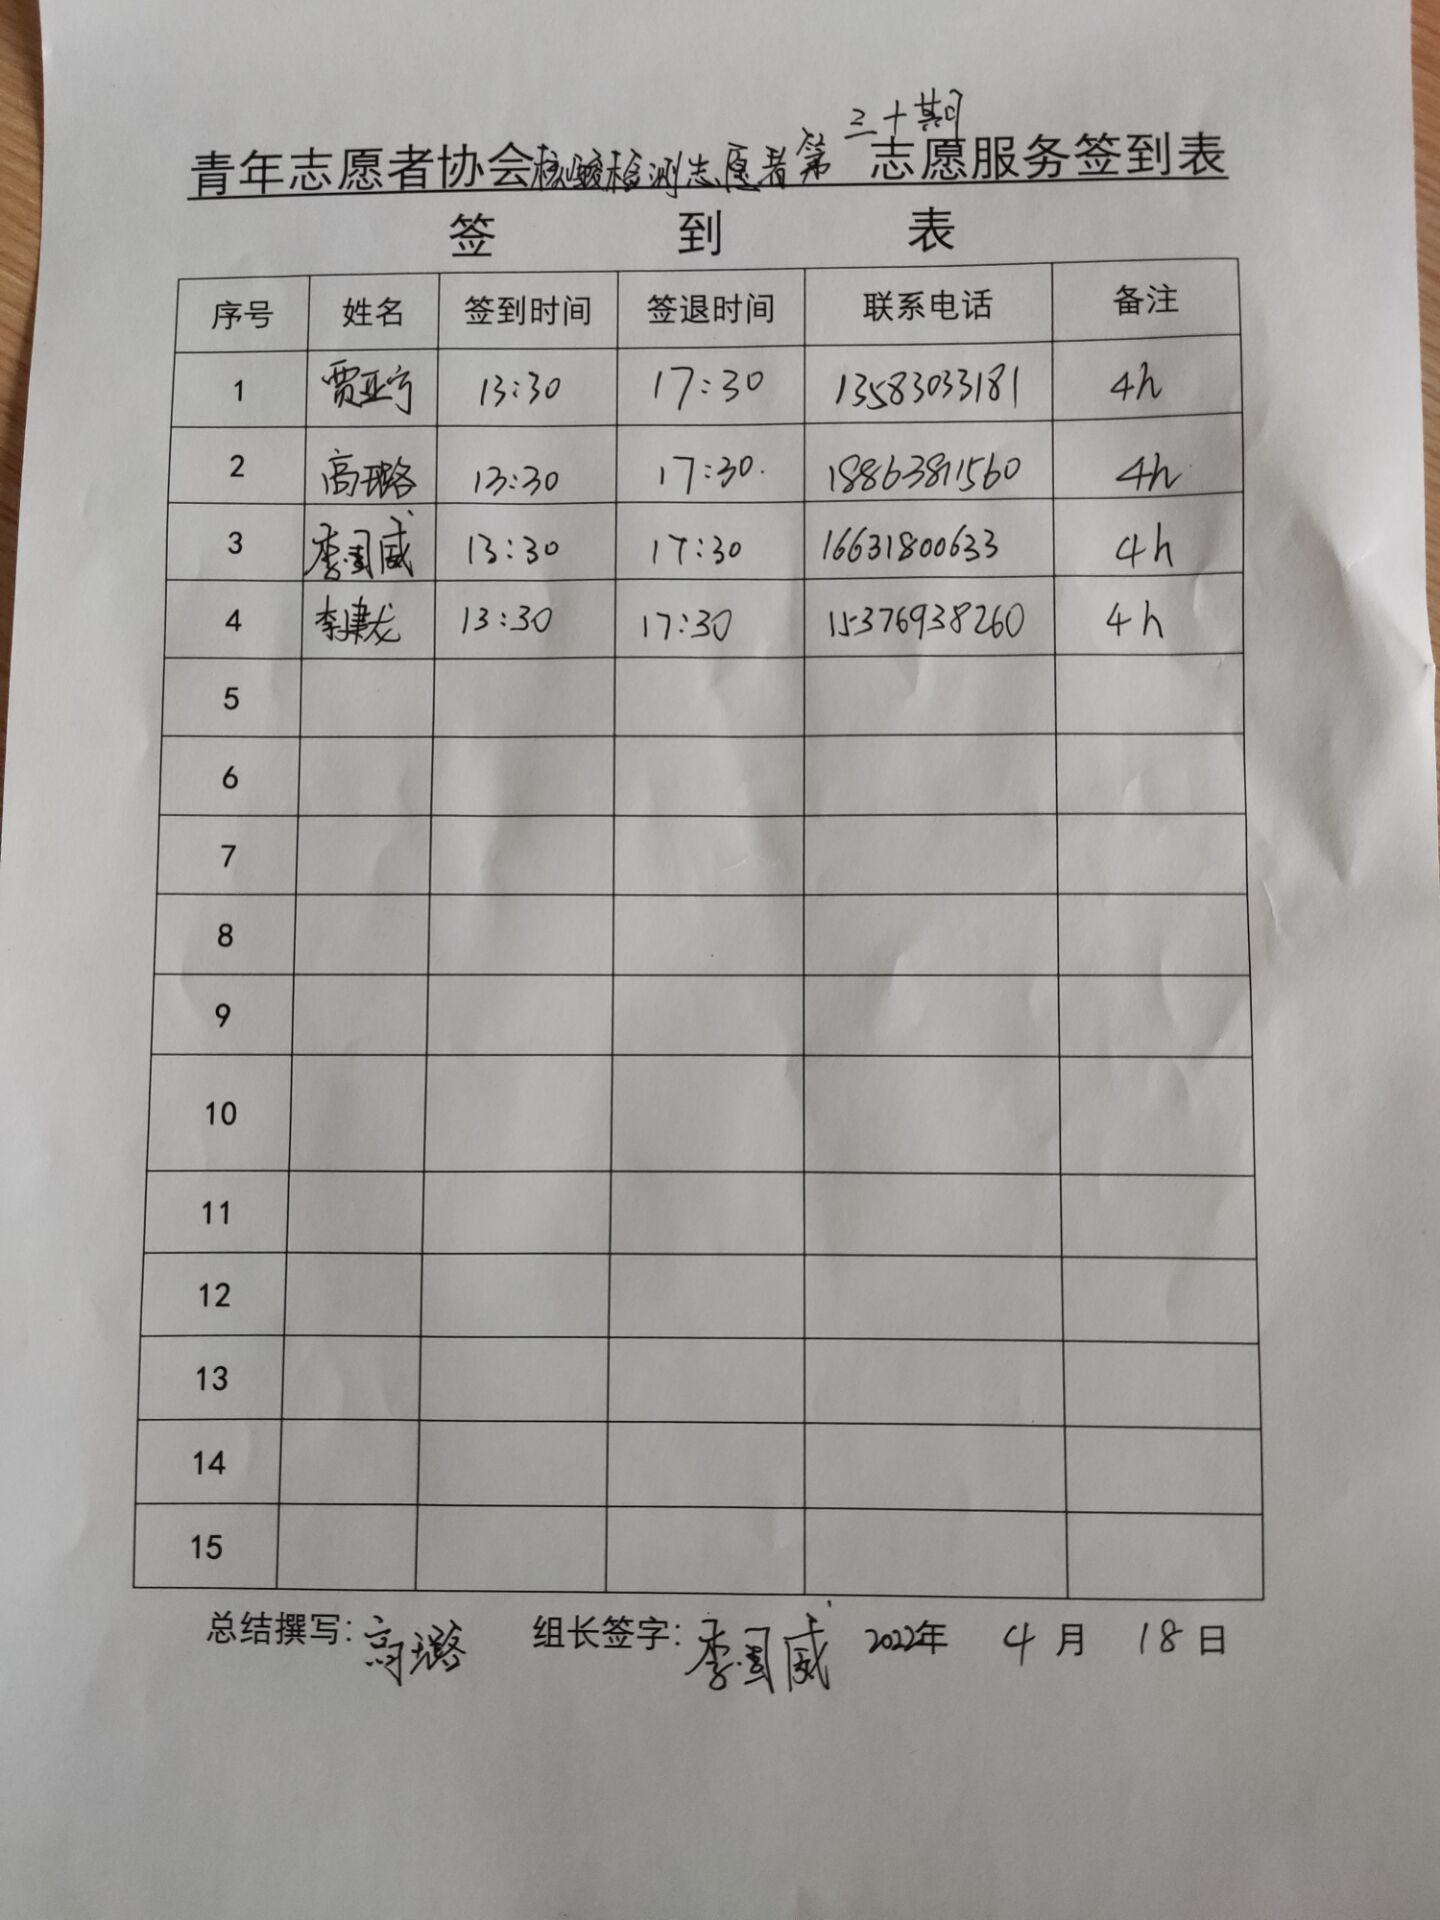 青年志愿者协会核酸检测志愿者第三十期志愿服务签到表
签 到 表
序号 姓名 签到时间 签退时间 联系电话 备注
1 贾亚宁 13:30 17:30 13583033181 4h
2 高璐 13:30 17:30. 18863811560 4h
3 李国威 13:30 17:30 16631800633 4h
4 李建龙 13:30 17:30 15376938260 4h
5
6
7
8
9
10
11
12
13
14
15
总结撰写: 高璐 组长签字: 李国威 2022年 4 月 18 日